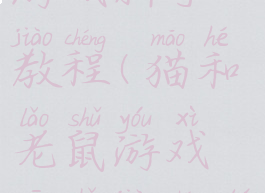 jiào chéng māo hé
教程(猫和
lǎo shǔ yóu xì
老鼠游戏